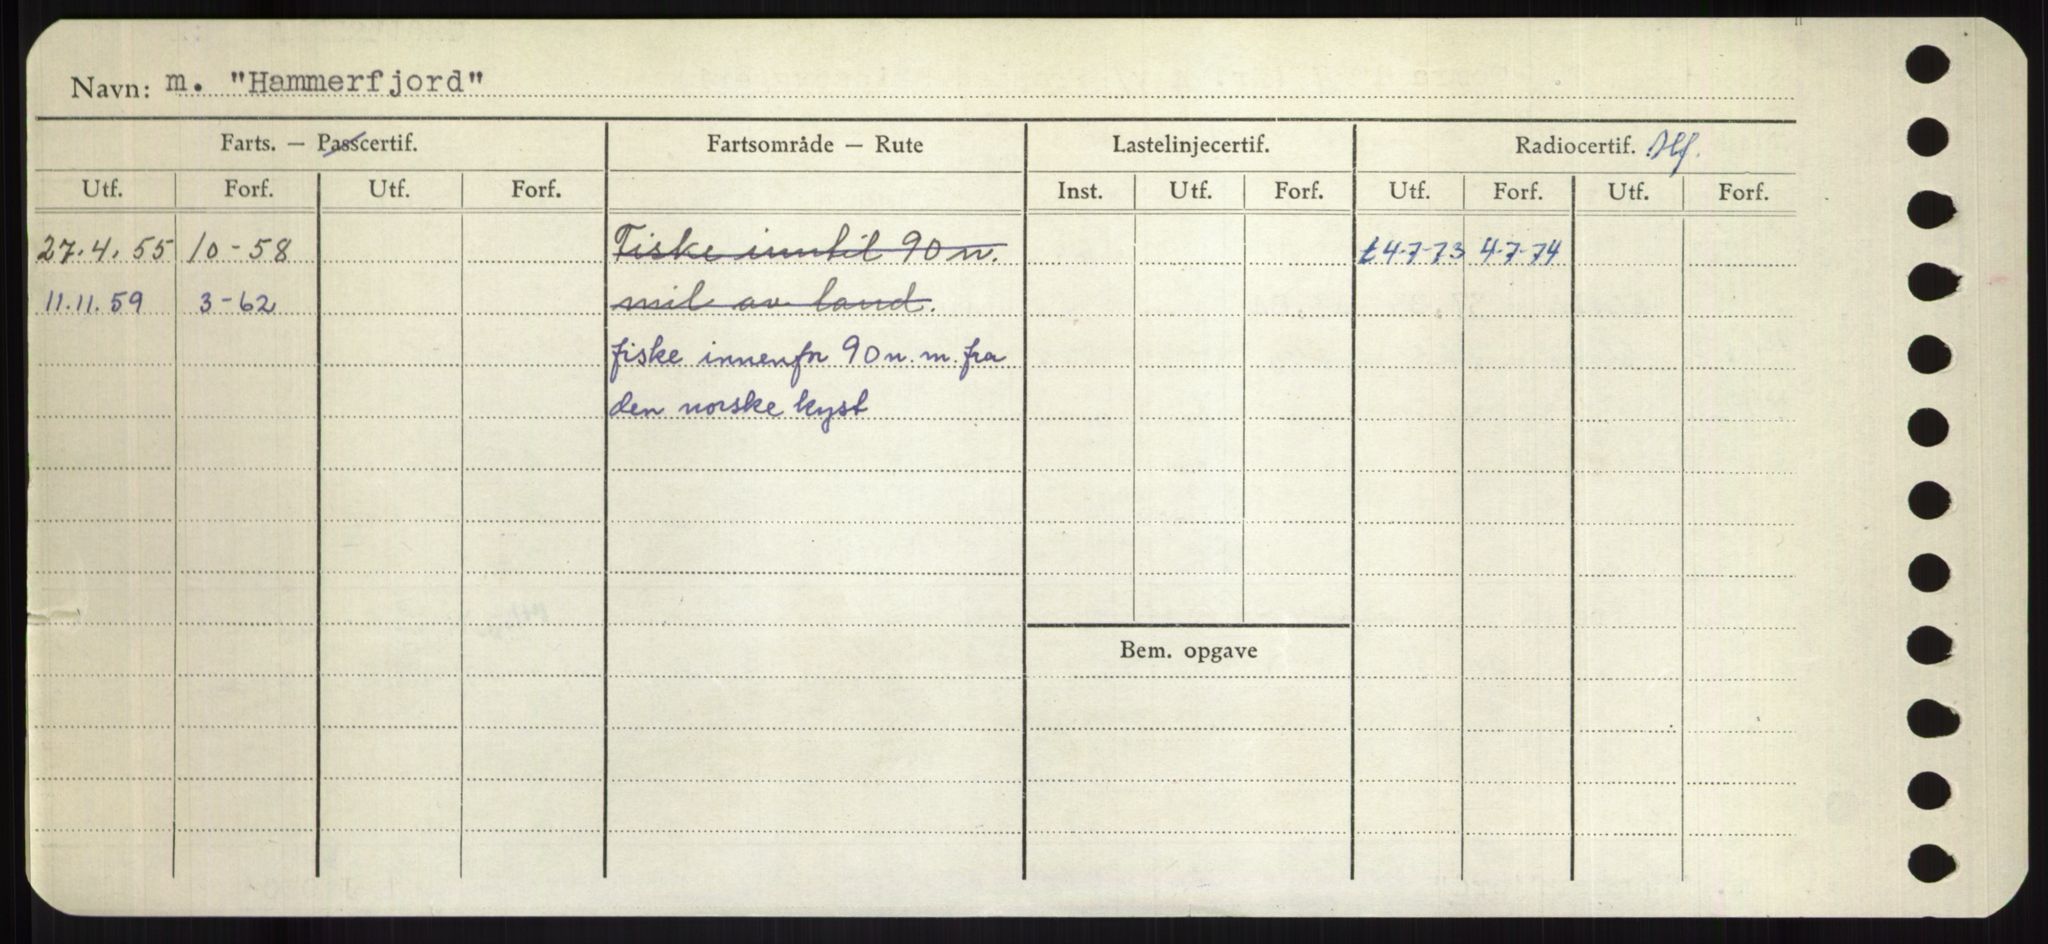 Navn: m. "Hammerfjord"
Farts. — Passcertif. Fartsområde — Rute Lastelinjecertif. Radiocertif.
Utf. Forf. Utf. Forf. Inst. Utf. Forf. Utf. Forf. Utf. Forf.
27.4.55 10-58 Fiske inntil 90 n. t4-7-73 4-7-74
11.11.59 3-62 mil av land.
fiske innenfor 90 n.m. fra
den norske kyst
Bem. opgave